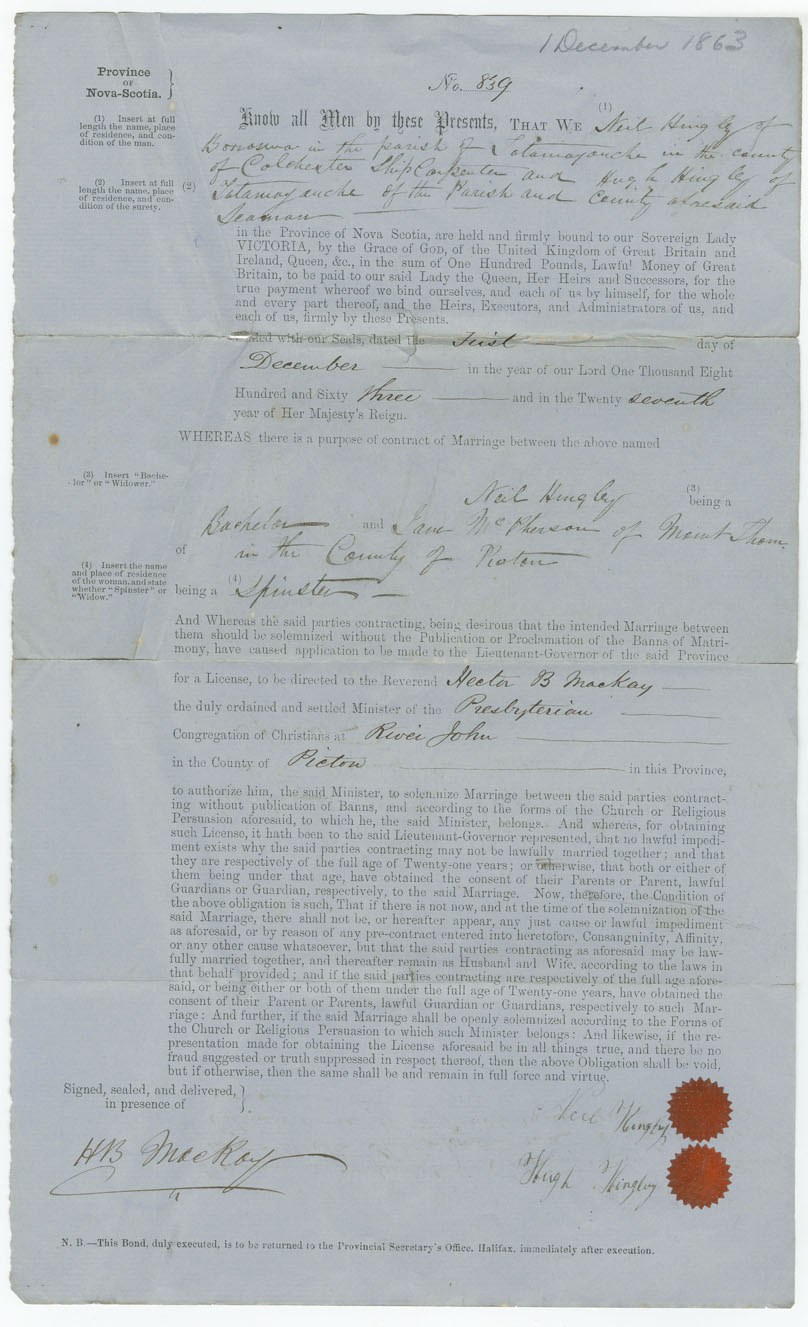 1 December 1863
Province
OF
Nova-Scotia.
No. 839
(1) Insert at full
length the name, place
of residence, and con-
dition of the man.
(1)
Know all Men by these Presents, THAT WE Neil Hingley of
in the parish of Tatamagouche in the county
of Colchester Ship Carpenter and Hugh Hingley of
(2) Insert at full
length the name, place
of residence, and con-
dition of the surety.
(2)
Tatamagouche of the Parish and County aforesaid
Seaman
in the Province of Nova Scotia, are held and firmly bound to our Sovereign Lady
VICTORIA, by the Grace of GOD, of the United Kingdom of Great Britain and
Ireland, Queen, &c., in the sum of One Hundred Pounds, Lawful Money of Great
Britain, to be paid to our said Lady the Queen, Her Heirs and Successors, for the
true payment whereof we bind ourselves, and each of us by himself, for the whole
and every part thereof, and the Heirs, Executors, and Administrators of us, and
each of us, firmly by these Presents.
Sealed with our Seals, dated the First day of
December in the year of our Lord One Thousand Eight
Hundred and Sixty three and in the Twenty seventh
year of Her Majesty's Reign.
WHEREAS there is a purpose of contract of Marriage between the above named
(3) Insert "Bache-
lor" or "Widower."
Neil Hingley (3) being a
Bachelor and Jane McPherson of Mount Thom
of in the County of Picton
(4) Insert the name
and place of residence
of the woman, and state
whether "Spinster" or
"Widow."
being a (4) Spinster
And Whereas the said parties contracting, being desirous that the intended Marriage between
them should be solemnized without the Publication or Proclamation of the Banns of Matri-
mony, have caused application to be made to the Lieutenant-Governor of the said Province
for a License, to be directed to the Reverend Hector B MacKay
the duly ordained and settled Minister of the Presbyterian
Congregation of Christians at River John
in the County of Picton in this Province,
to authorize him, the said Minister, to solemnize Marriage between the said parties contract-
ing without publication of Banns, and according to the forms of the Church or Religious
Persuasion aforesaid, to which he, the said Minister, belongs. And whereas, for obtaining
such License, it hath been to the said Lieutenant-Governor represented, that no lawful impedi-
ment exists why the said parties contracting may not be lawfully married together; and that
they are respectively of the full age of Twenty-one years; or otherwise, that both or either of
them being under that age, have obtained the consent of their Parents or Parent, lawful
Guardians or Guardian, respectively, to the said Marriage. Now, therefore, the Condition of
the above obligation is such, That if there is not now, and at the time of the solemnization of the
said Marriage, there shall not be, or hereafter appear, any just cause or lawful impediment
as aforesaid, or by reason of any pre-contract entered into heretofore, Consanguinity, Affinity,
or any other cause whatsoever, but that the said parties contracting as aforesaid may be law-
fully married together, and thereafter remain as Husband and Wife, according to the laws in
that behalf provided; and if the said parties contracting are respectively of the full age afore-
said, or being either or both of them under the full age of Twenty-one years, have obtained the
consent of their Parent or Parents, lawful Guardian or Guardians, respectively to such Mar-
riage: And further, if the said Marriage shall be openly solemnized according to the Forms of
the Church or Religious Persuasion to which such Minister belongs: And likewise, if the re-
presentation made for obtaining the License aforesaid be in all things true, and there be no
fraud suggested or truth suppressed in respect thereof, then the above Obligation shall be void,
but if otherwise, then the same shall be and remain in full force and virtue.
Signed, sealed, and delivered,
in presence of
Neil Hingley
HB MacKay
Hugh Hingley
N. B.—This Bond, duly executed, is to be returned to the Provincial Secretary's Office, Halifax, immediately after execution.